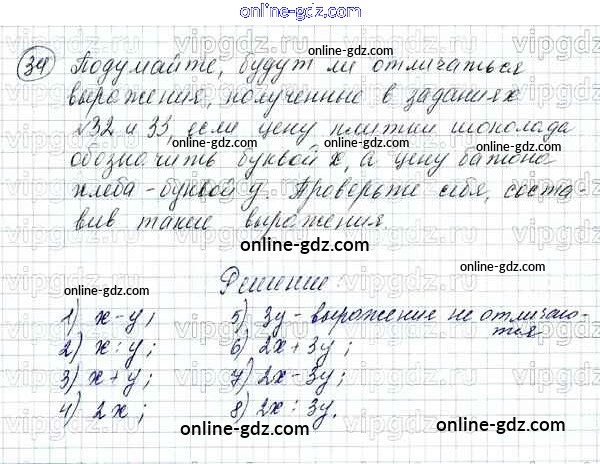 online-gdz.com
34 Подумайте, будут ли отличаться
выражения, полученные в заданиях
№32 и 33, если цену плитки шоколада
обозначить буквой x, а цену батона
хлеба - буквой y. Проверьте себя, соста-
вив такие выражения.
Решение:
1) x - y;
2) x : y;
3) x + y;
4) 2x;
5) 3y - выражение не отличаю-
тся
6) 2x + 3y;
7) 2x - 3y;
8) 2x : 3y.
online-gdz.com
online-gdz.com
online-gdz.com
online-gdz.com
online-gdz.com
online-gdz.com
online-gdz.com
online-gdz.com
online-gdz.com
online-gdz.com